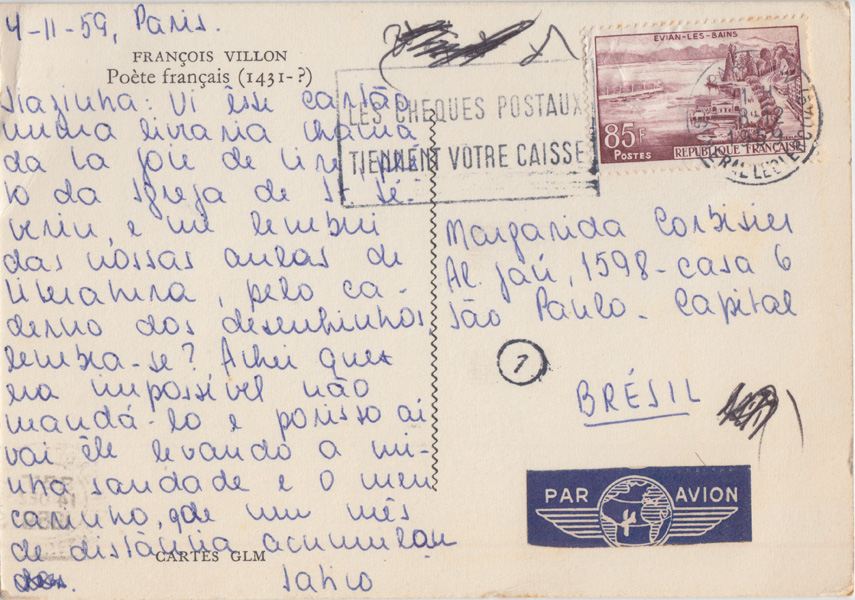 4-11-59, Paris.
FRANÇOIS VILLON
Poète français (1431-?)
Vi êsse cartão
numa livraria chama
da La joie de lire, per
to da Igreja de St. Sé-
verin, e me lembrei
das nossas aulas de
literatura, pelo ca-
derno dos desenhinhos,
lembra-se? Achei que
era impossível não
mandá-lo e porisso aí
vai êle levando a mi-
nha saudade e o meu
carinho, que um mês
de distância acumulou
CARTES GLM
LES CHEQUES POSTAUX
TIENNENT VOTRE CAISSE
EVIAN-LES-BAINS
85F
POSTES
REPUBLIQUE FRANÇAISE
1959
Margarida Corbisier
Al. Jaú, 1598 - casa 6
São Paulo - Capital
BRÉSIL
PAR AVION